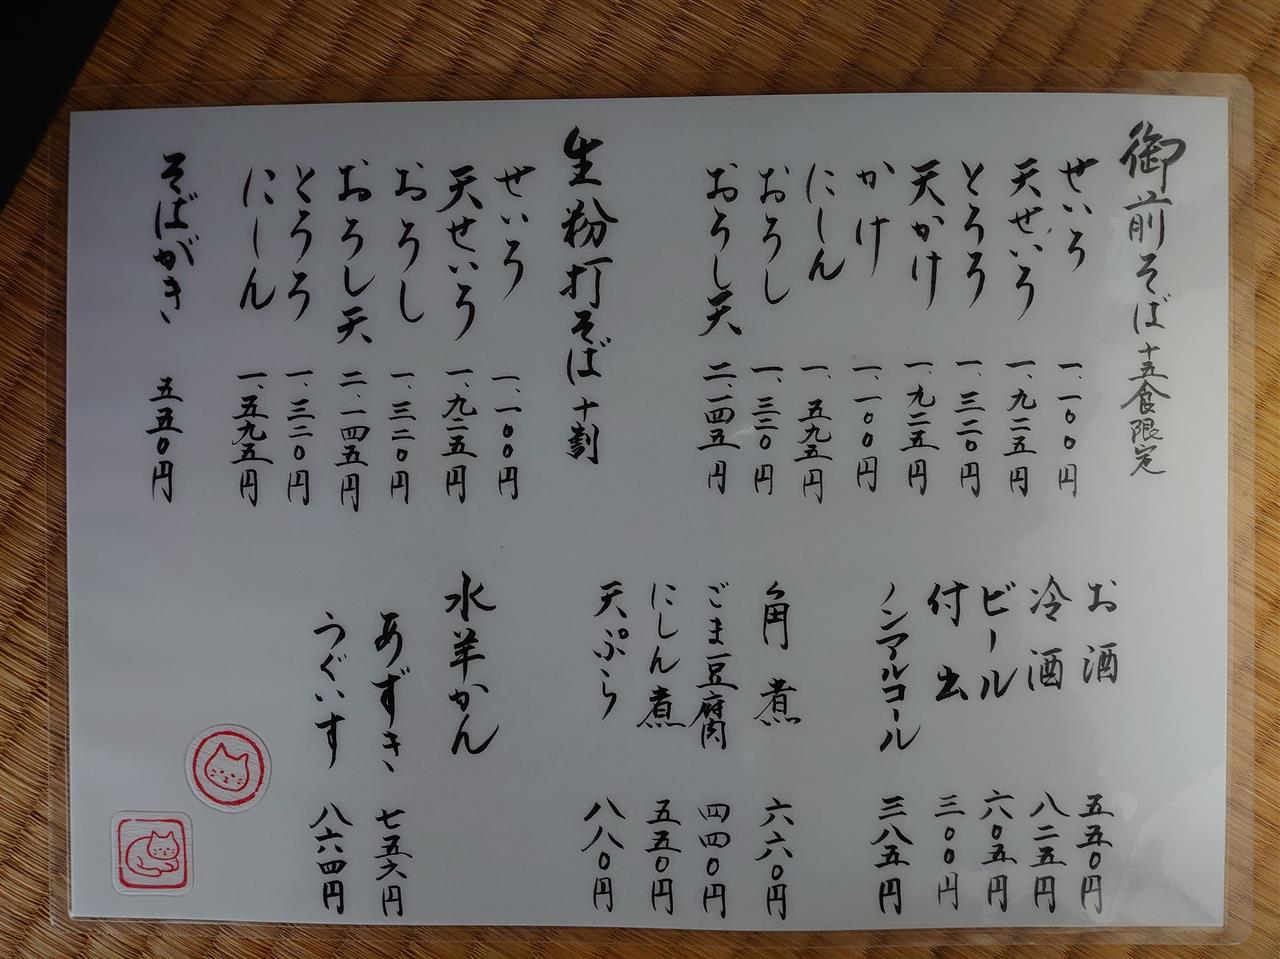 御前そば 十五食限定
せいろ 一、一〇〇円
天せいろ 一、九二五円
とろろ 一、三二〇円
天かけ 一、九二五円
かけ 一、一〇〇円
にしん 一、五九五円
おろし 一、三二〇円
おろし天 二、一四五円
生粉打そば 十割
せいろ 一、一〇〇円
天せいろ 一、九二五円
おろし 一、三二〇円
おろし天 二、一四五円
とろろ 一、三二〇円
にしん 一、五九五円
そばがき 五五〇円
お酒 五五〇円
冷酒 八二五円
ビール 六〇五円
付出 三〇〇円
ノンアルコール 三八五円
角煮 六六〇円
ごま豆腐 四四〇円
にしん煮 五五〇円
天ぷら 八八〇円
水羊かん
あずき 七五六円
うぐいす 八六四円